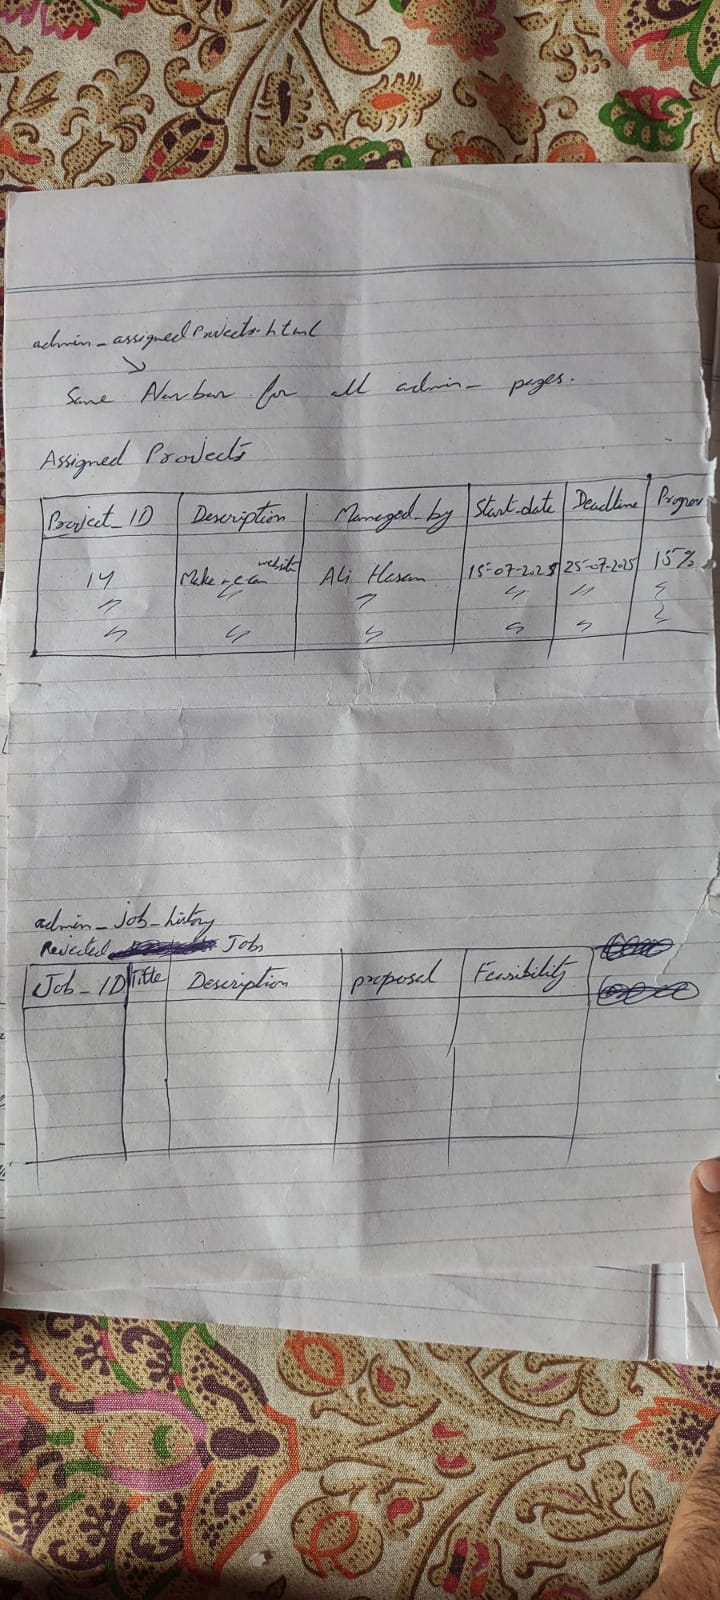 admin_assignedProjects.html
Same Navbar for all admin_ pages.
Assigned Projects
Project_ID Description Managed_by Start_date Deadline Progress
14 Make a website Ali Hasan 15-07-2025 25-07-2025 15%
" " " " " "
" " " " " "
admin_job_history
Rejected Jobs
Job_ID Title Description proposal Feasibility